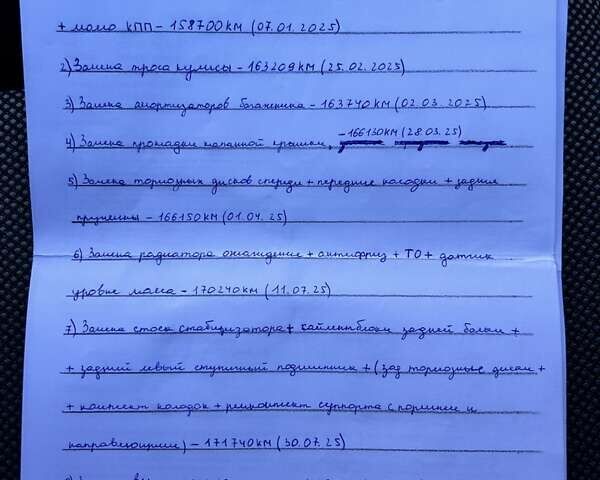 + масло КПП - 158700КМ (07.01.2025)
2) Замена троса кулисы - 163209КМ (25.02.2025)
3) Замена амортизаторов багажника - 163740КМ (02.03.2025)
4) Замена прокладки клапанной крышки, - 166130КМ (28.03.25)
5) Замена тормозных дисков спереди + передние колодки + задние
пружины - 166150КМ (01.04.25)
6) Замена радиатора охлаждение + антифриз + ТО + датчик
уровне масла - 170240КМ (11.07.25)
7) Замена стоек стабилизатора + сайлентблоки задней балки +
+ задний левый ступичный подшипник + (зад тормозные диски +
+ комплект колодок + ремкомплект суппорта с поршнем и
направляющими) - 171740КМ (30.07.25)